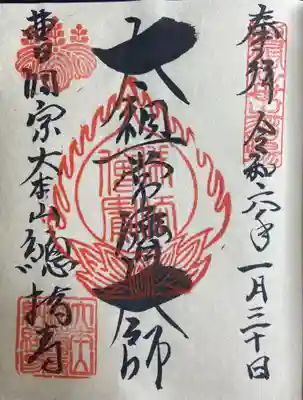 奉拝 令和六年一月三十日
太祖常済大師
曹洞宗大本山總持寺